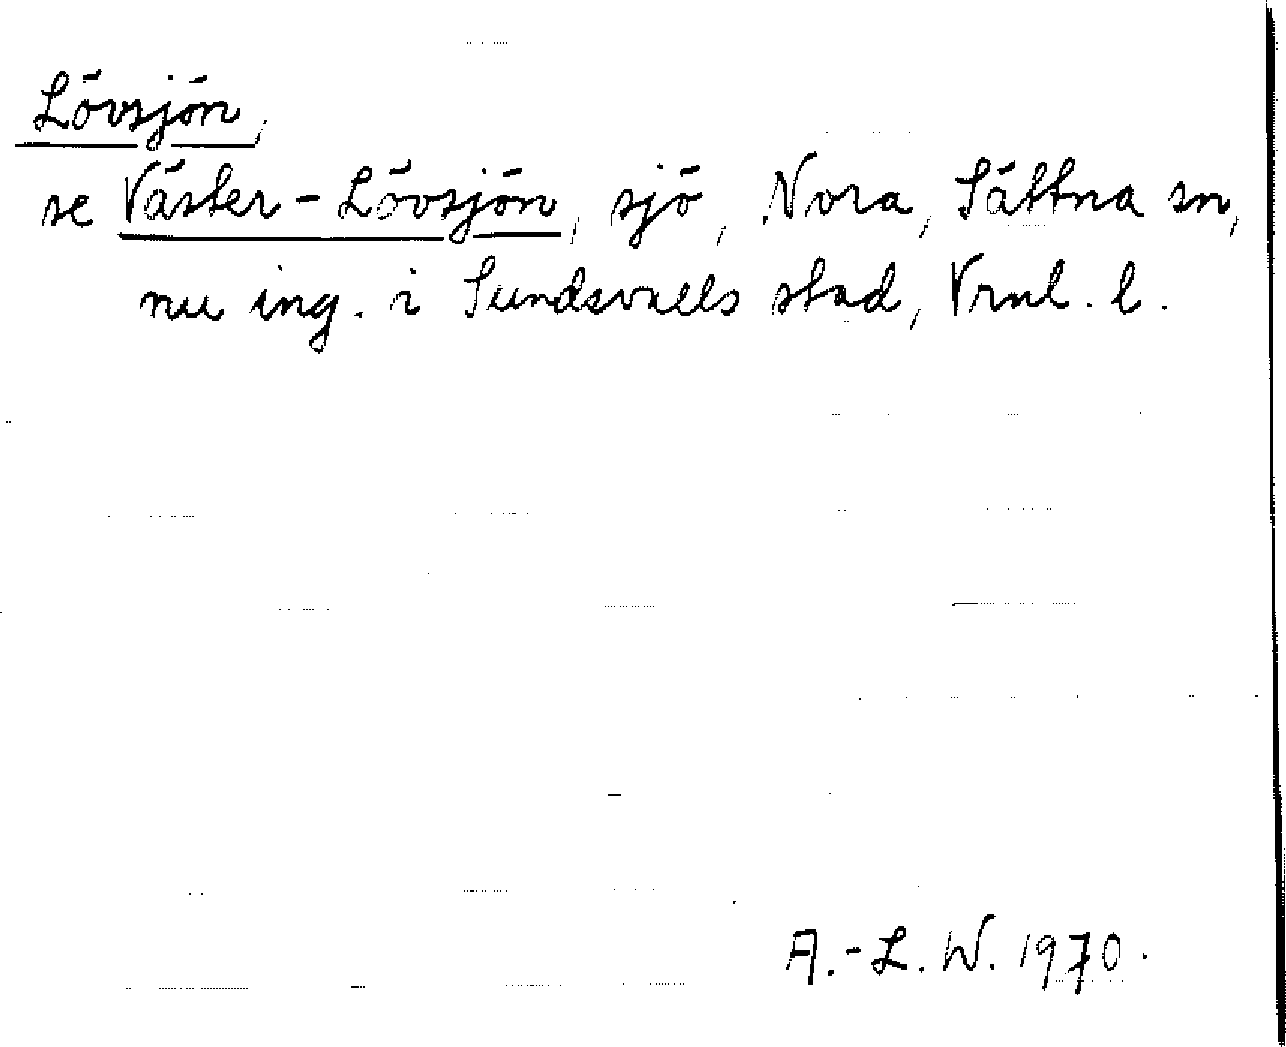 Lövsjön,
se Väster-Lövsjön, sjö, Nora, Sättna sn,
nu ing. i Sundsvalls stad, Vrnl. l.
A.-L. W. 1970.